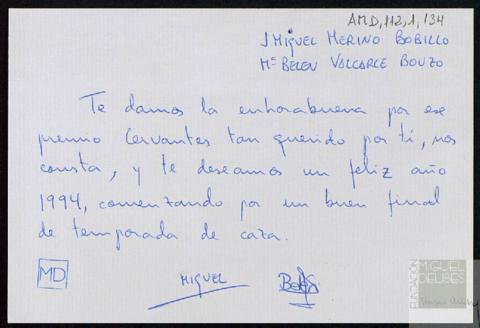 AMD,112,1,134
J Miguel Merino Bobillo
Mª Belen Valcarce Bouzo
Te damos la enhorabuena por ese
premio Cervantes tan querido por ti, nos
consta, y te deseamos un feliz año
1994, comenzando por un buen final
de temporada de caza.
MD
MIGUEL
Belén
FUNDACIÓN
MIGUEL
DELIBES